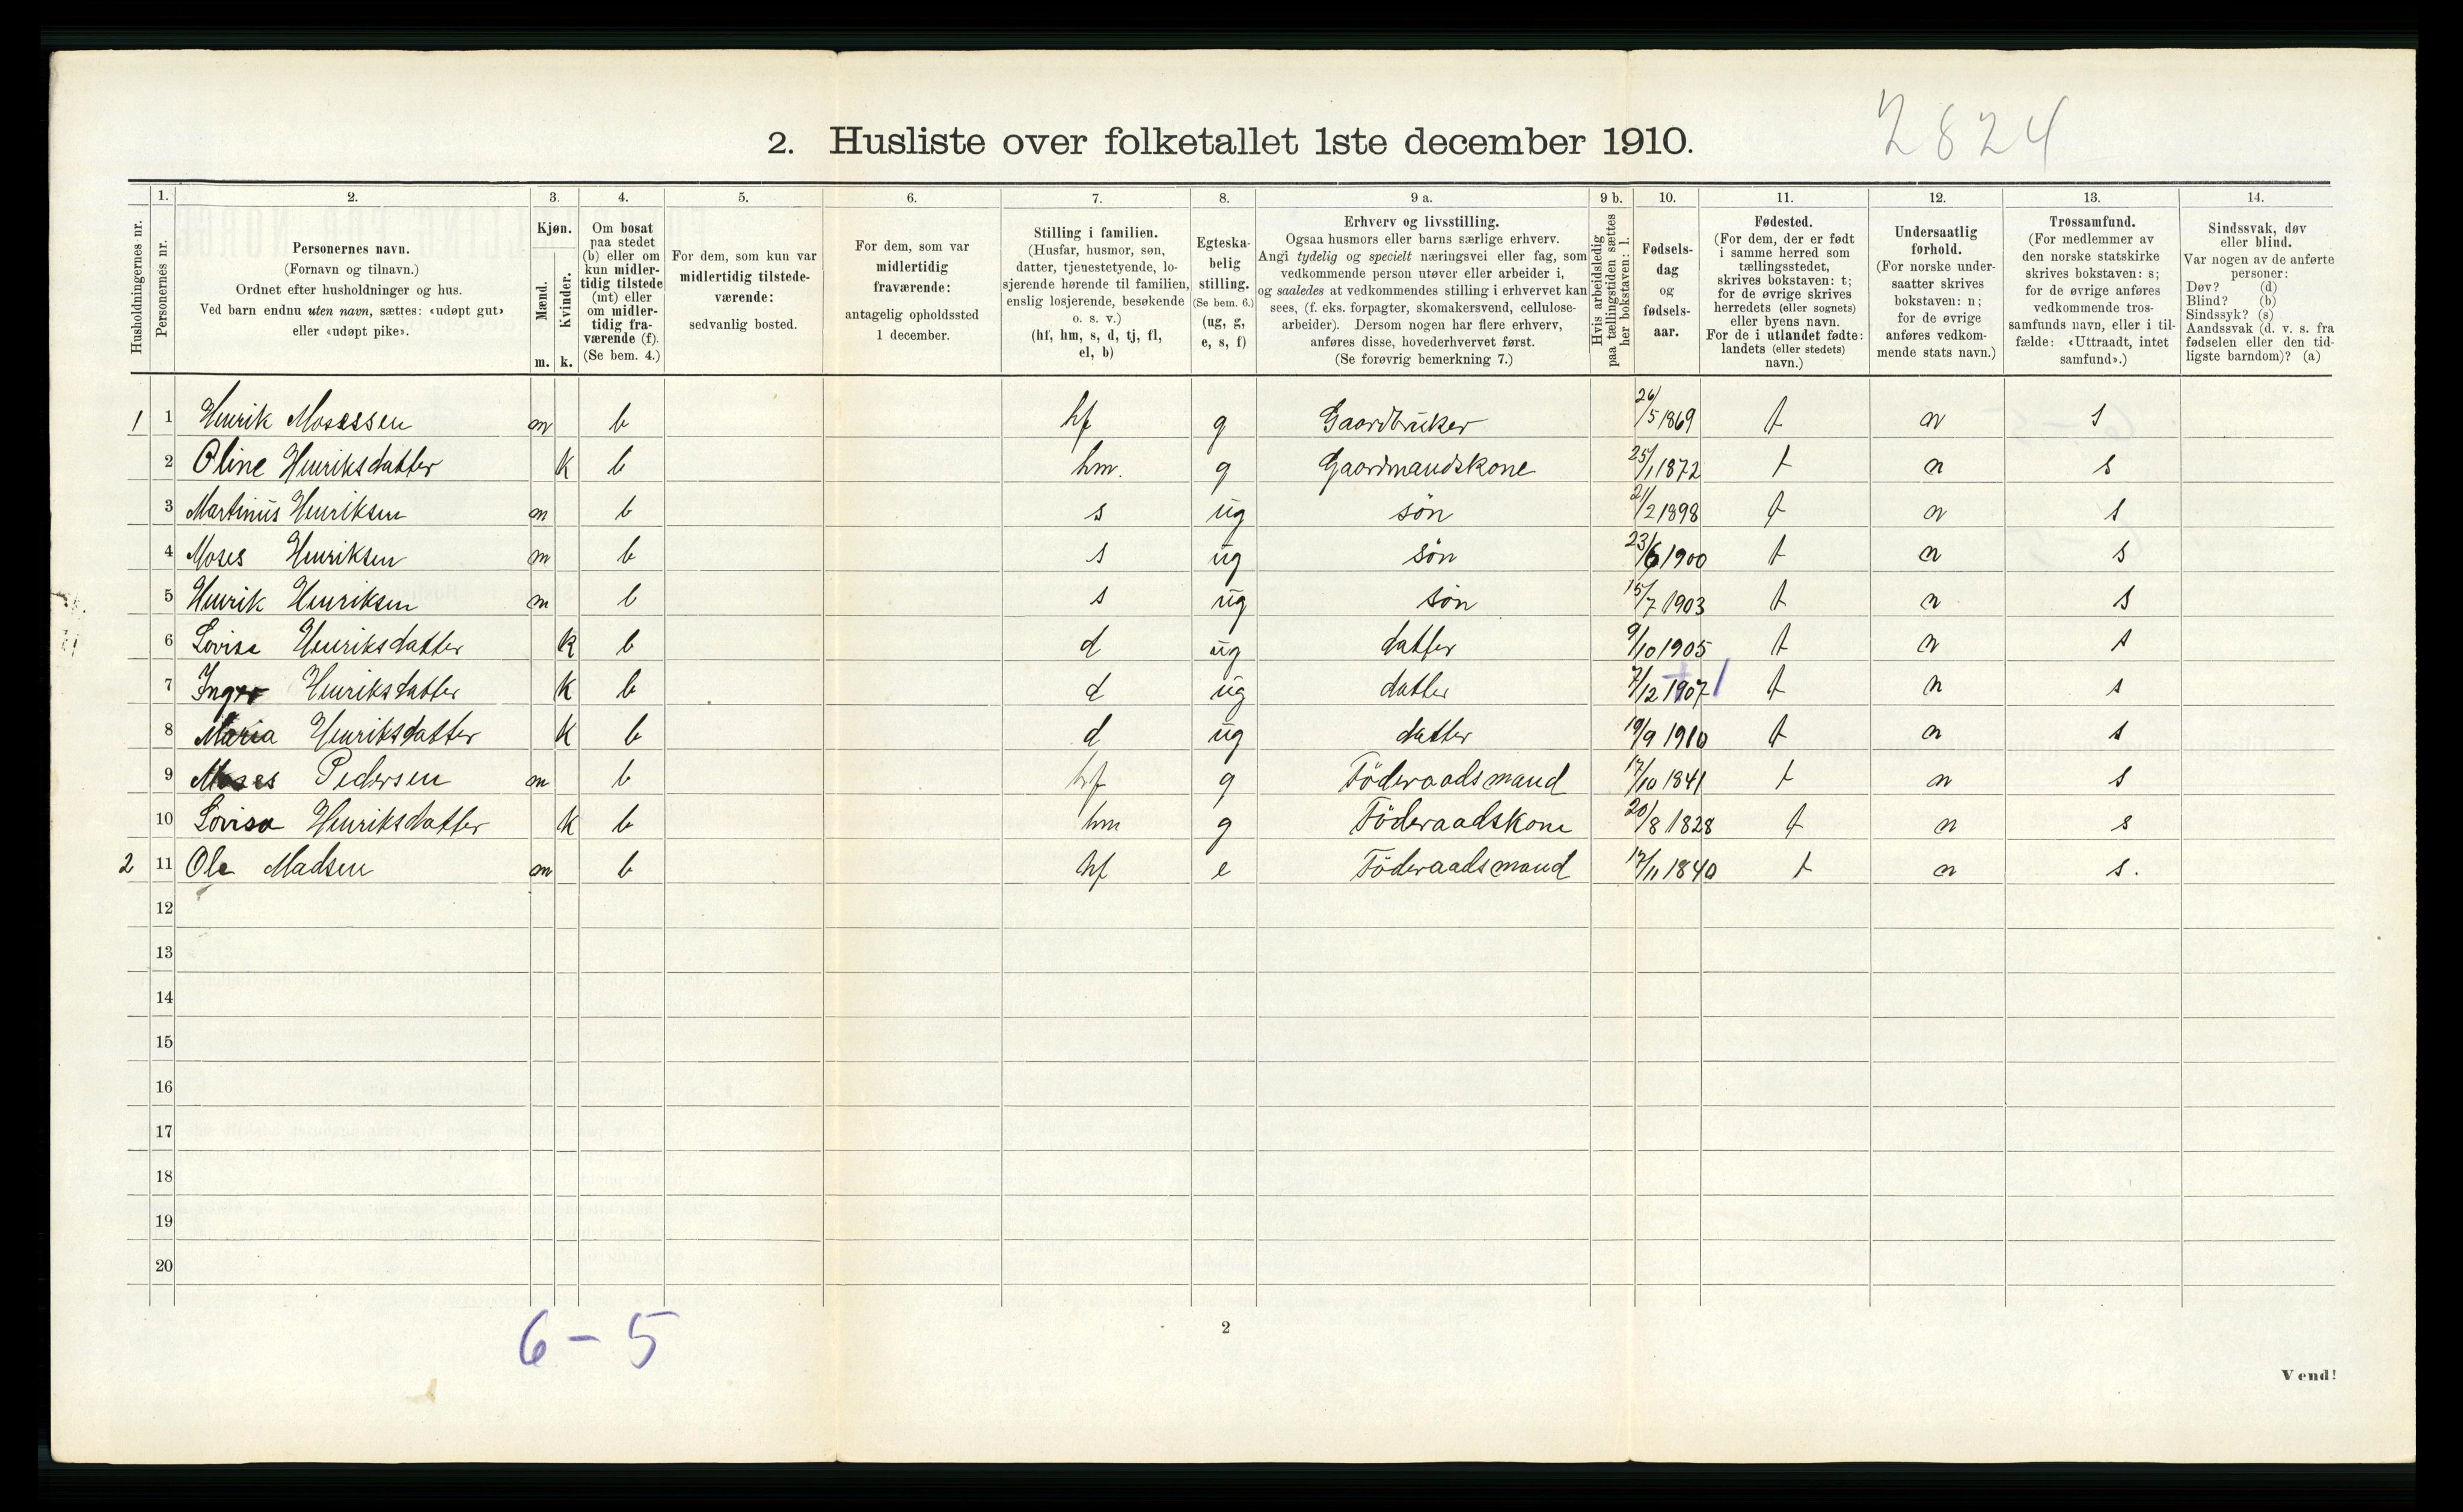 2824
2. Husliste over folketallet 1ste december 1910.
1. 2. 3. 4. 5. 6. 7. 8. 9 a. 9 b. 10. 11. 12. 13. 14.
Husholdningernes nr.
Personernes nr.
Personernes navn.
(Fornavn og tilnavn.)
Ordnet efter husholdninger og hus.
Ved barn endnu uten navn, sættes: «udøpt gut»
eller «udøpt pike».
Kjøn.
Mænd.
Kvinder.
m. k.
Om bosat
paa stedet
(b) eller om
kun midler-
tidig tilstede
(mt) eller
om midler-
tidig fra-
værende (f).
(Se bem. 4.)
For dem, som kun var
midlertidig tilstede-
værende:
sedvanlig bosted.
For dem, som var
midlertidig
fraværende:
antagelig opholdssted
1 december.
Stilling i familien.
(Husfar, husmor, søn,
datter, tjenestetyende, lo-
sjerende hørende til familien,
enslig losjerende, besøkende
o. s. v.)
(hf, hm, s, d, tj, fl,
el, b)
Egteska-
belig
stilling.
(Se bem. 6.)
(ug, g,
e, s, f)
Erhverv og livsstilling.
Ogsaa husmors eller barns særlige erhverv.
Angi tydelig og specielt næringsvei eller fag, som
vedkommende person utøver eller arbeider i,
og saaledes at vedkommendes stilling i erhvervet kan
sees, (f. eks. forpagter, skomakersvend, cellulose-
arbeider). Dersom nogen har flere erhverv,
anføres disse, hovederhvervet først.
(Se forøvrig bemerkning 7.)
Hvis arbeidsledig
paa tællingstiden sættes
her bokstaven: l.
Fødsels-
dag
og
fødsels-
aar.
Fødested.
(For dem, der er født
i samme herred som
tællingsstedet,
skrives bokstaven: t;
for de øvrige skrives
herredets (eller sognets)
eller byens navn.
For de i utlandet fødte:
landets (eller stedets)
navn.)
Undersaatlig
forhold.
(For norske under-
saatter skrives
bokstaven: n;
for de øvrige
anføres vedkom-
mende stats navn.)
Trossamfund.
(For medlemmer av
den norske statskirke
skrives bokstaven: s;
for de øvrige anføres
vedkommende tros-
samfunds navn, eller i til-
fælde: «Uttraadt, intet
samfund».)
Sindssvak, døv
eller blind.
Var nogen av de anførte
personer:
Døv? (d)
Blind? (b)
Sindssyk? (s)
Aandssvak (d. v. s. fra
fødselen eller den tid-
ligste barndom)? (a)
1 1 Henrik Mosessen m b hf g Gaardbruker 26/5 1869 t n s
2 Oline Henriksdatter k b hm. g Gaardmandskone 25/1 1872 t n s
3 Martinus Henriksen m b s ug søn 21/2 1898 t n s
4 Moses Henriksen m b s ug søn 23/6 1900 t n s
5 Henrik Henriksen m b s ug søn 15/7 1903 t n s
6 Lovise Henriksdatter k b d ug datter 9/10 1905 t n s
7 Henriksdatter k b d ug datter 7/12 1907 t n s
8 Maria Henriksdatter k b d ug datter 19/9 1910 t n s
9 Moses Pedersen m b hf g Föderaadsmand 17/10 1841 t n s
10 Lovisa Henriksdatter k b hm g Föderaadskone 20/8 1828 t n s
2 11 Ole Madsen m b hf e Föderaadsmand 17/11 1840 t n s.
12
13
14
15
16
17
18
19
20
6 – 5
2
Vend!